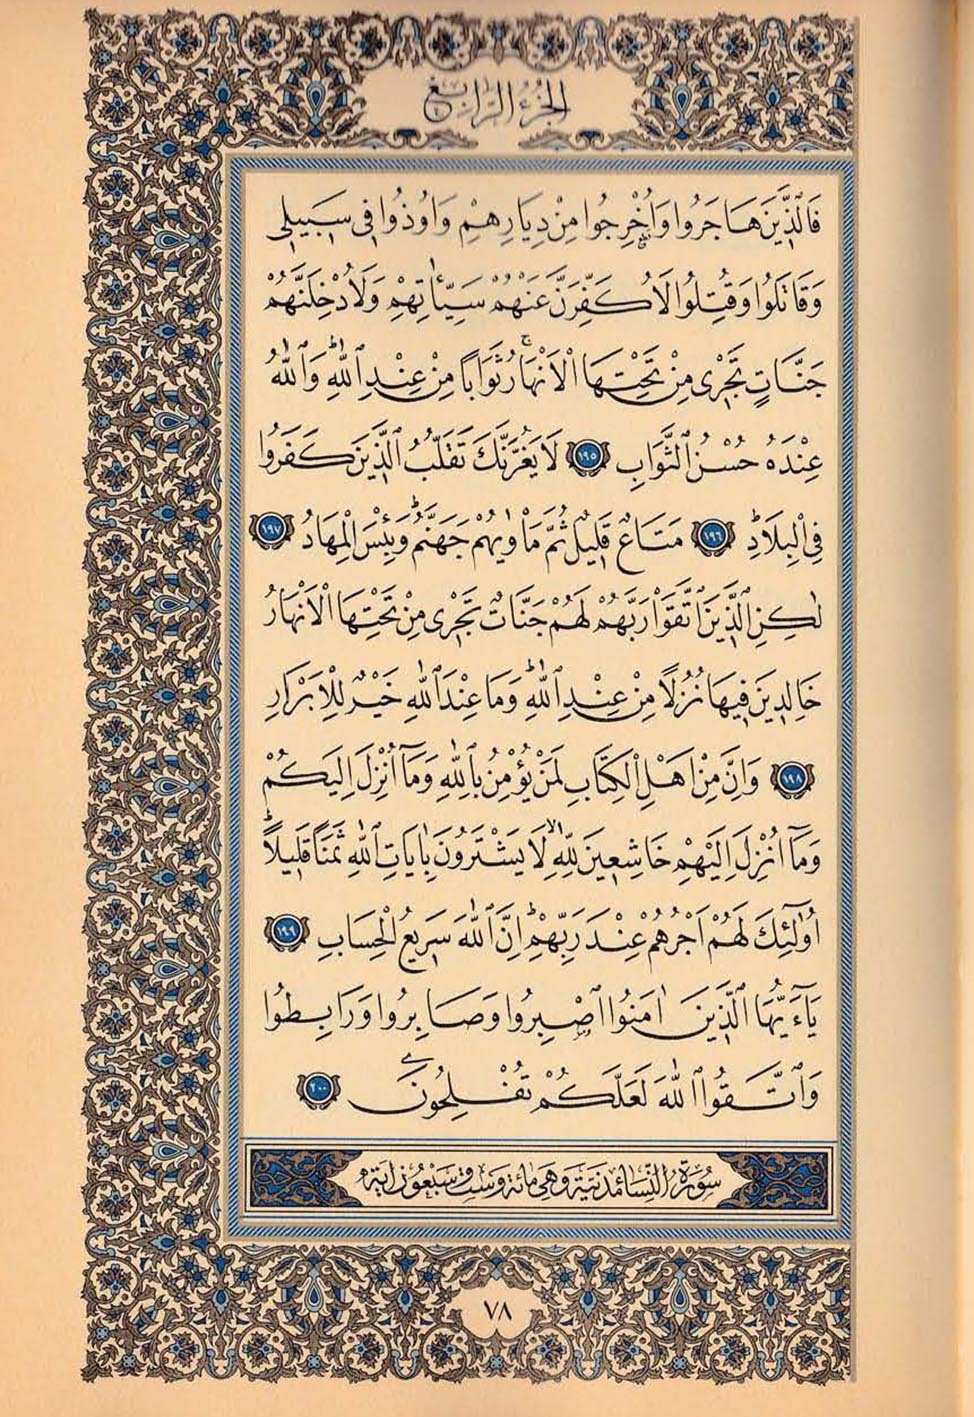 الجزء الرابع
فَالَّذِينَ هَاجَرُوا وَاُخْرِجُوا مِنْ دِيَارِهِمْ وَاُوذُوا فِى سَبِيلِى
وَقَاتَلُوا وَقُتِلُوا لَاُكَفِّرَنَّ عَنْهُمْ سَيِّـَٔاتِهِمْ وَلَاُدْخِلَنَّهُمْ
جَنَّاتٍ تَجْرِى مِنْ تَحْتِهَا الْاَنْهَارُۚ ثَوَابًا مِنْ عِنْدِ اللّٰهِۜ وَاللّٰهُ
عِنْدَهُ حُسْنُ الثَّوَابِ ١٩٥ لَا يَغُرَّنَّكَ تَقَلُّبُ الَّذِينَ كَفَرُوا
فِى الْبِلَادِۜ ١٩٦ مَتَاعٌ قَلِيلٌ ثُمَّ مَاْوٰيهُمْ جَهَنَّمُۜ وَبِئْسَ الْمِهَادُ ١٩٧
لٰكِنِ الَّذِينَ اتَّقَوْا رَبَّهُمْ لَهُمْ جَنَّاتٌ تَجْرِى مِنْ تَحْتِهَا الْاَنْهَارُ
خَالِدِينَ فِيهَا نُزُلًا مِنْ عِنْدِ اللّٰهِۜ وَمَا عِنْدَ اللّٰهِ خَيْرٌ لِلْاَبْرَارِ
١٩٨ وَاِنَّ مِنْ اَهْلِ الْكِتَابِ لَمَنْ يُؤْمِنُ بِاللّٰهِ وَمَٓا اُنْزِلَ اِلَيْكُمْ
وَمَٓا اُنْزِلَ اِلَيْهِمْ خَاشِعِينَ لِلّٰهِۙ لَا يَشْتَرُونَ بِاٰيَاتِ اللّٰهِ ثَمَنًا قَلِيلًاۜ
اُو۬لٰٓئِكَ لَهُمْ اَجْرُهُمْ عِنْدَ رَبِّهِمْۜ اِنَّ اللّٰهَ سَرِيعُ الْحِسَابِ ١٩٩
يَٓا اَيُّهَا الَّذِينَ اٰمَنُوا اصْبِرُوا وَصَابِرُوا وَرَابِطُوا
وَاتَّقُوا اللّٰهَ لَعَلَّكُمْ تُفْلِحُونَ ٢٠٠
سُورَةُ النِّسَاءِ مَدَنِيَّةٌ وَهِىَ مِائَةٌ وَسِتٌّ وَسَبْعُونَ اٰيَةً
٧٨